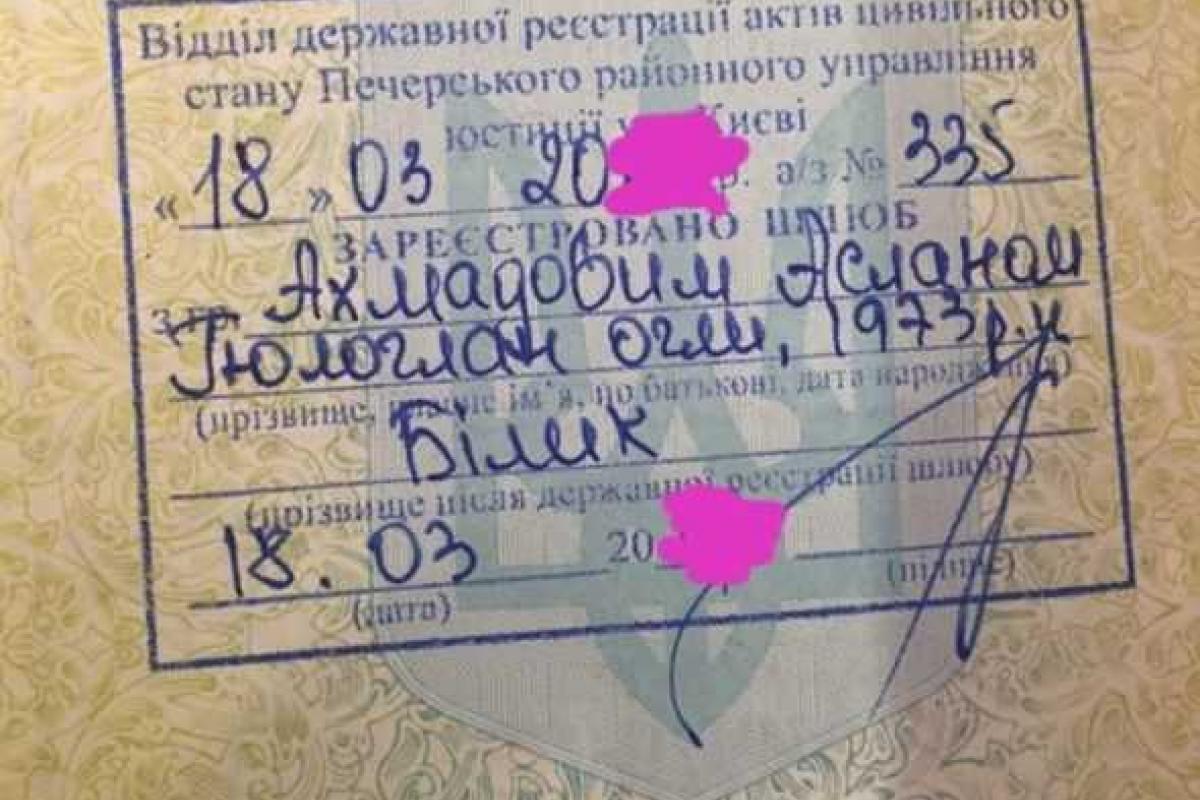 Відділ державної реєстрації актів цивільного
стану Печерського районного управління
юстиції Києві
« 18 » 03 20 р. а/з № 335
ЗАРЕЄСТРОВАНО ШЛЮБ
з гр. Ахмадовим Асланом
Гюлоглан огли, 1973 р.н
(прізвище, власне ім'я, по батькові, дата народження)
Білик
(прізвище після державної реєстрації шлюбу)
18. 03 20
(дата) (підпис)